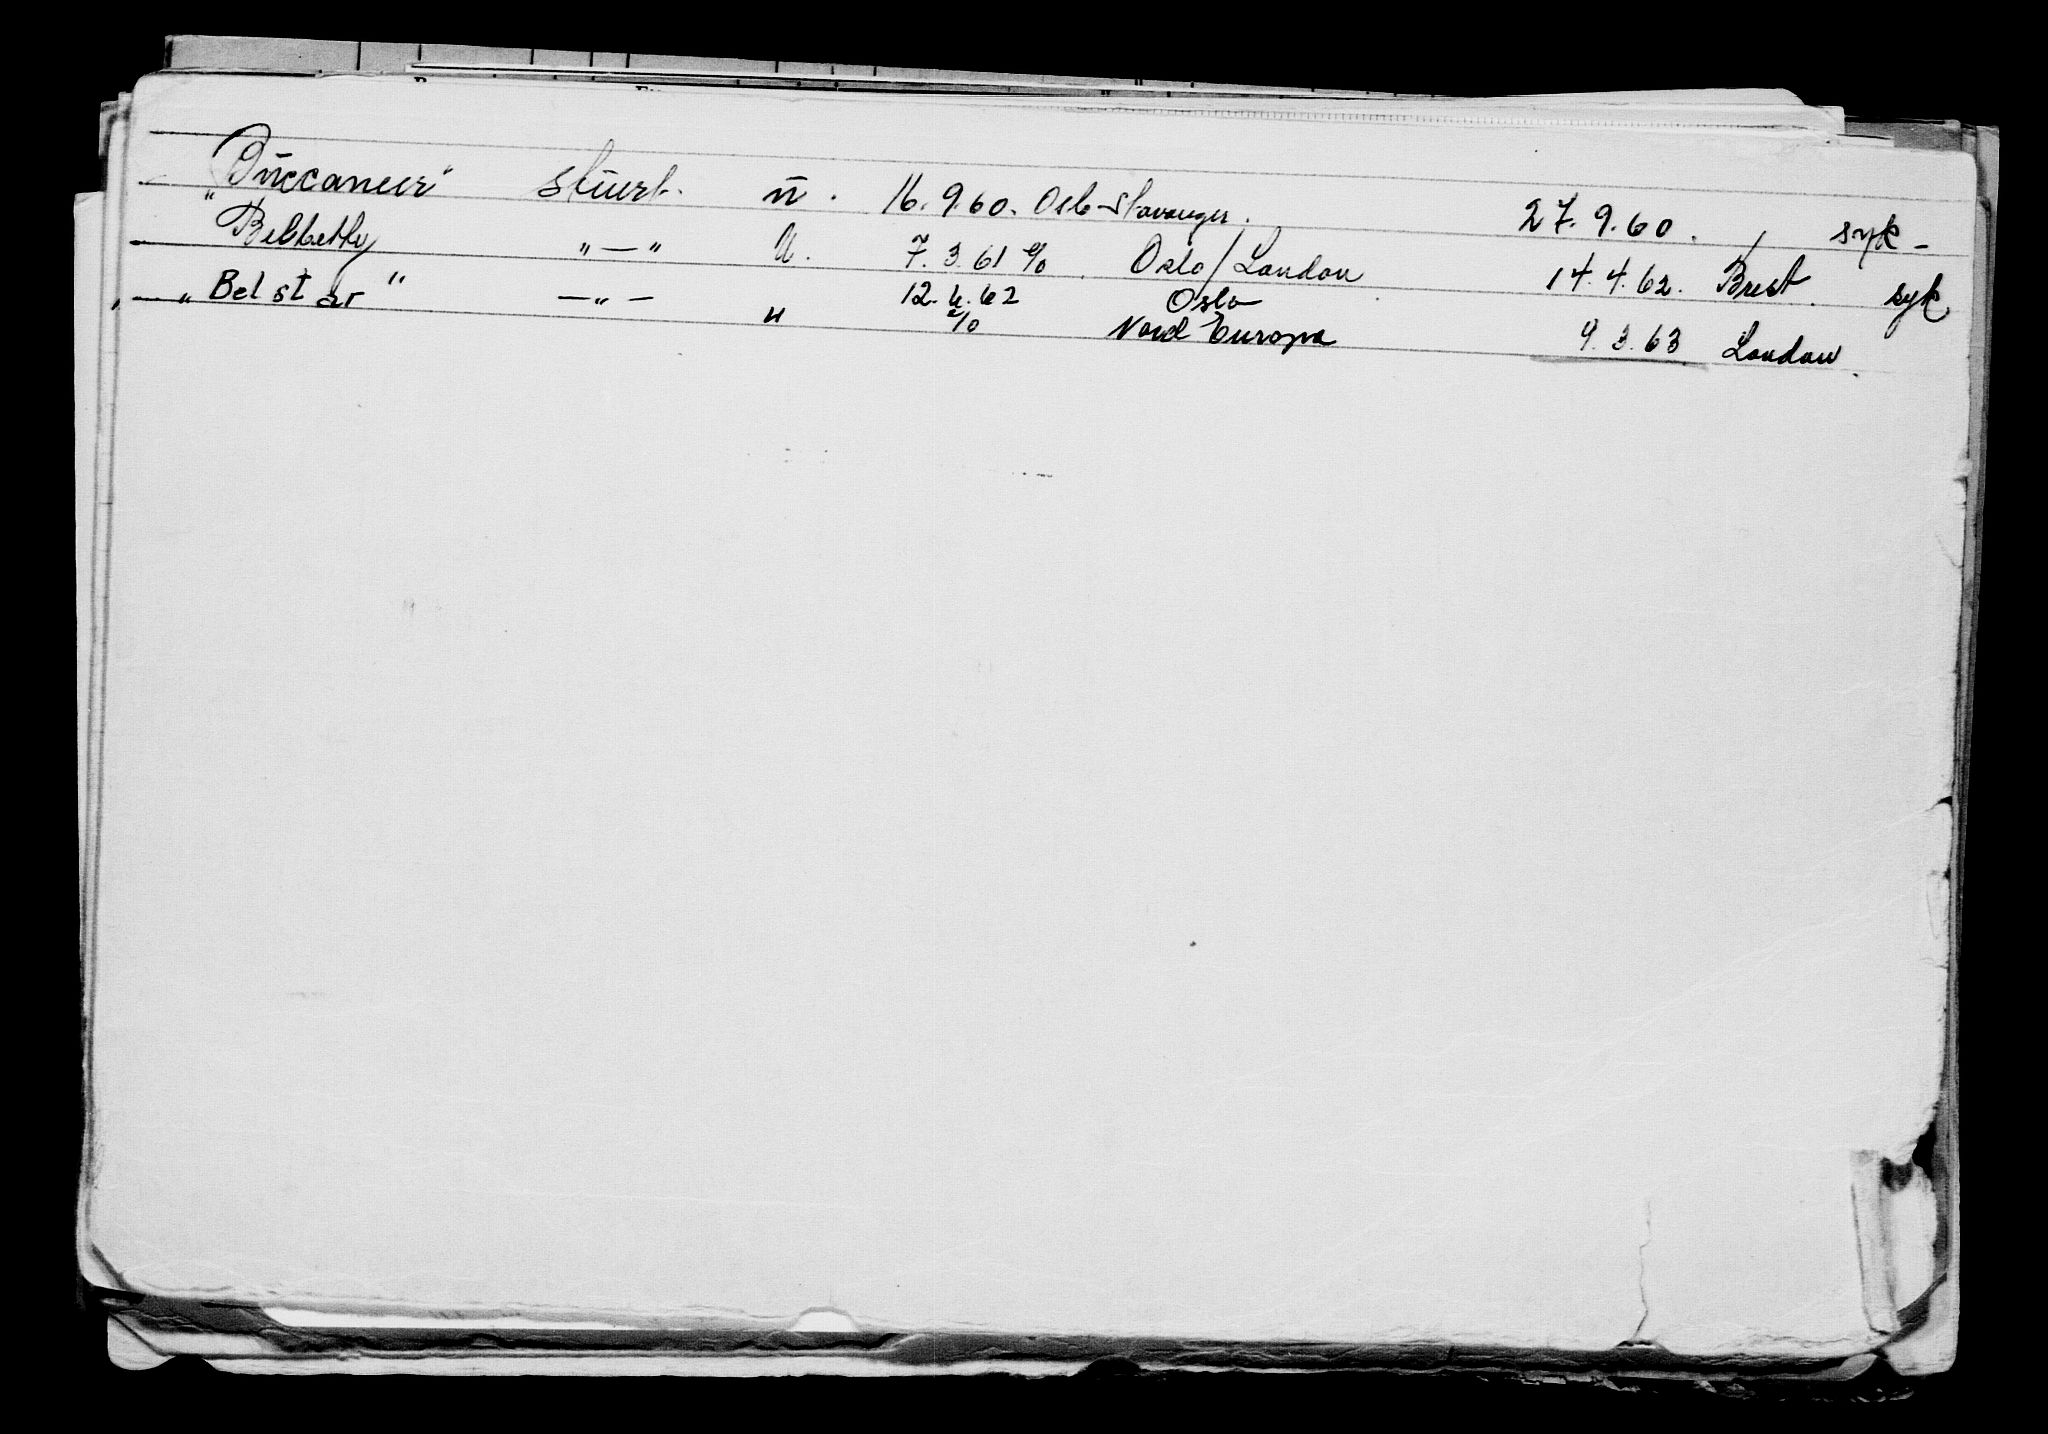 "Buccaneer" stuert. u. 16.9.60. Oslo-Stavanger. 27.9.60. / syk-
Belbetty "—" U. 7.3.61 % Oslo/London 14.4.62. Brest. syk.
—"— "Belstar" —"— " 12.4.62 Oslo
% Nord Europa 9.3.63 London.